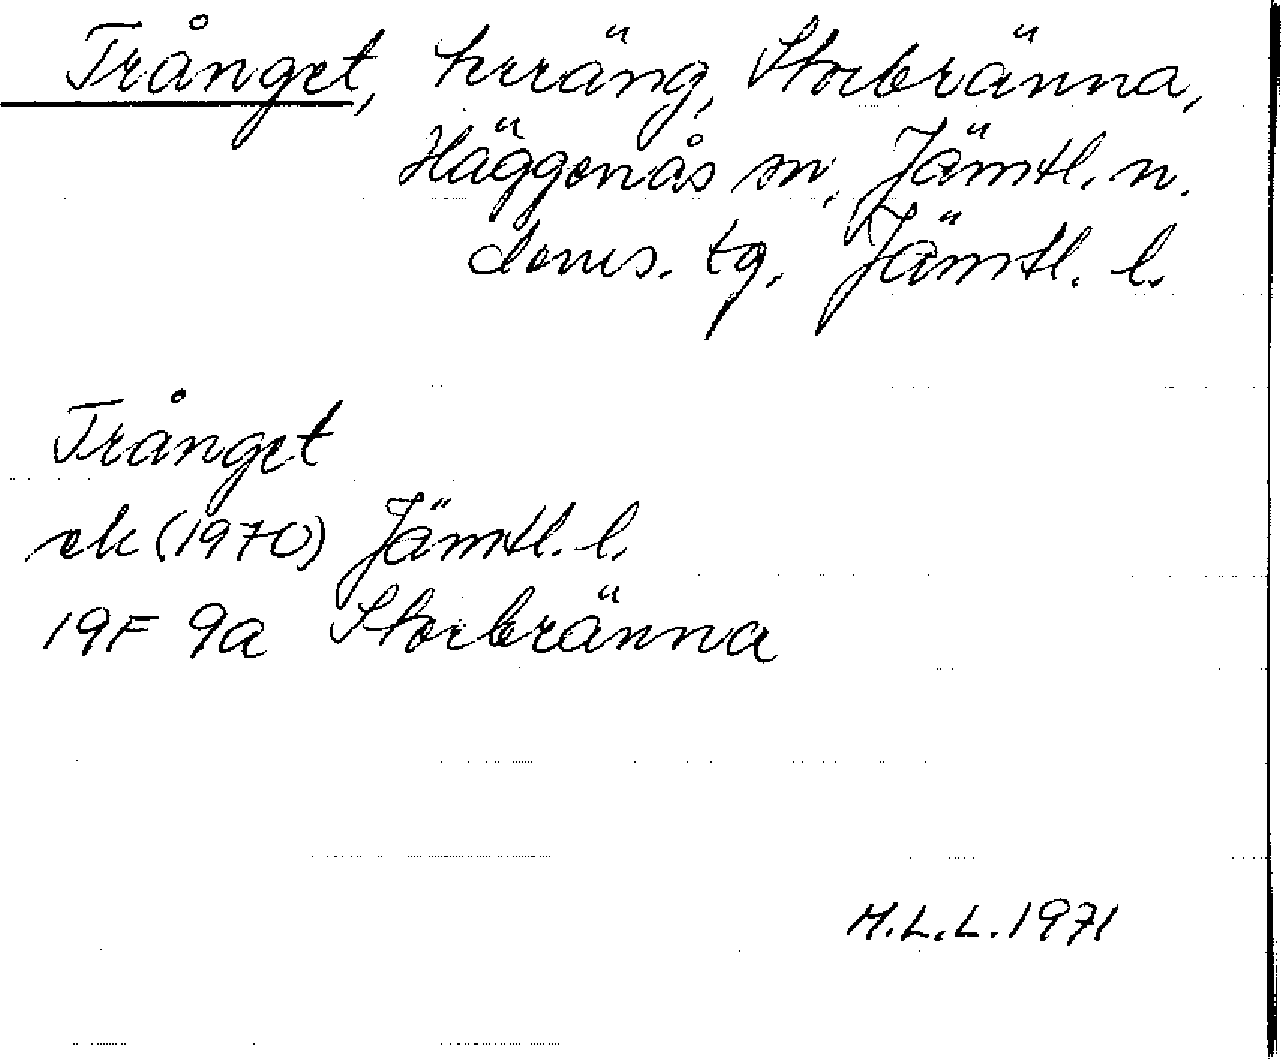 Trånget, terräng, Storbränna,
Häggenås sn, Jämtl. n.
doms. tg. Jämtl. l.
Trånget
ek (1970) Jämtl. l.
19F 9a Storbränna
M.L.L. 1971